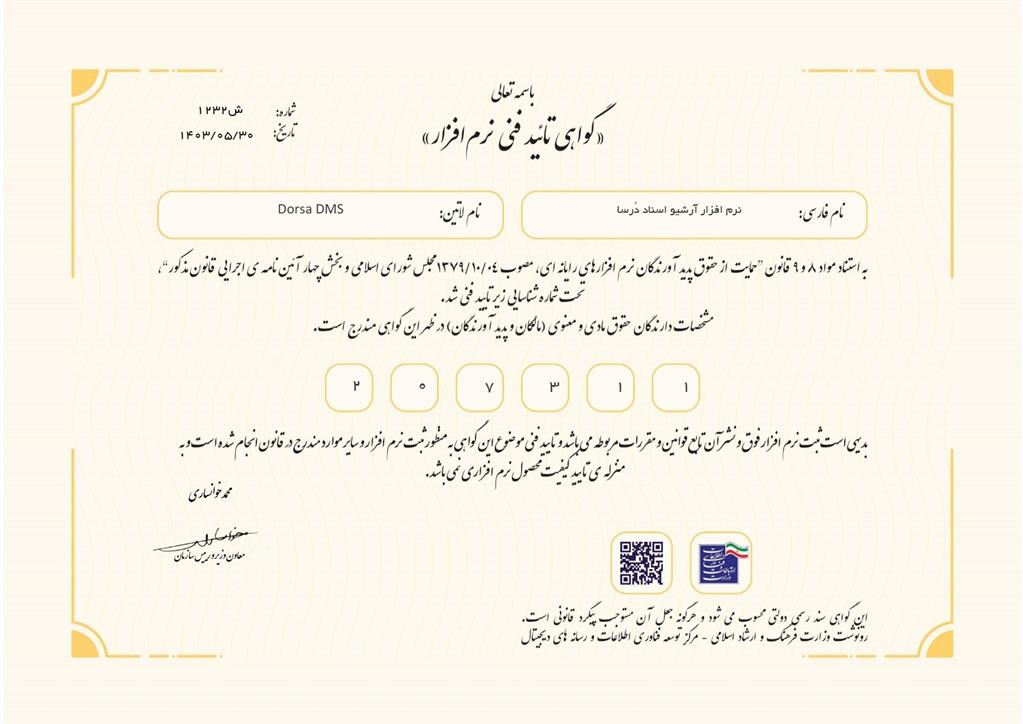 باسمه تعالی
«گواهی تائید فنی نرم افزار»
شماره: ش۱۲۳۲
تاریخ: ۱۴۰۳/۰۵/۳۰
نام فارسی: نرم افزار آرشیو اسناد دُرسا
نام لاتین: Dorsa DMS
به استناد مواد ۸ و ۹ قانون "حمایت از حقوق پدید آورندگان نرم افزارهای رایانه ای، مصوب ۱۳۷۹/۱۰/۰۴ مجلس شورای اسلامی و بخش چهار آئین نامه ی اجرایی قانون مذکور"،
تحت شماره شناسایی زیر تایید فنی شد.
مشخصات دارندگان حقوق مادی و معنوی (مالکان و پدید آورندگان) در ظهر این گواهی مندرج است.
۲ ۰ ۷ ۳ ۱ ۱
بدیهی است ثبت نرم افزار فوق و نشر آن تابع قوانین و مقررات مربوطه می باشد و تایید فنی موضوع این گواهی به منظور ثبت نرم افزار و سایر موارد مندرج در قانون انجام شده است و به
منزله ی تایید کیفیت محصول نرم افزاری نمی باشد.
محمد خوانساری
معاون وزیر و رییس سازمان
وزارت ارتباطات و فناوری اطلاعات
این گواهی سند رسمی دولتی محسوب می شود و هرگونه جعل آن مستوجب پیگرد قانونی است.
رونوشت وزارت فرهنگ و ارشاد اسلامی - مرکز توسعه فناوری اطلاعات و رسانه های دیجیتال